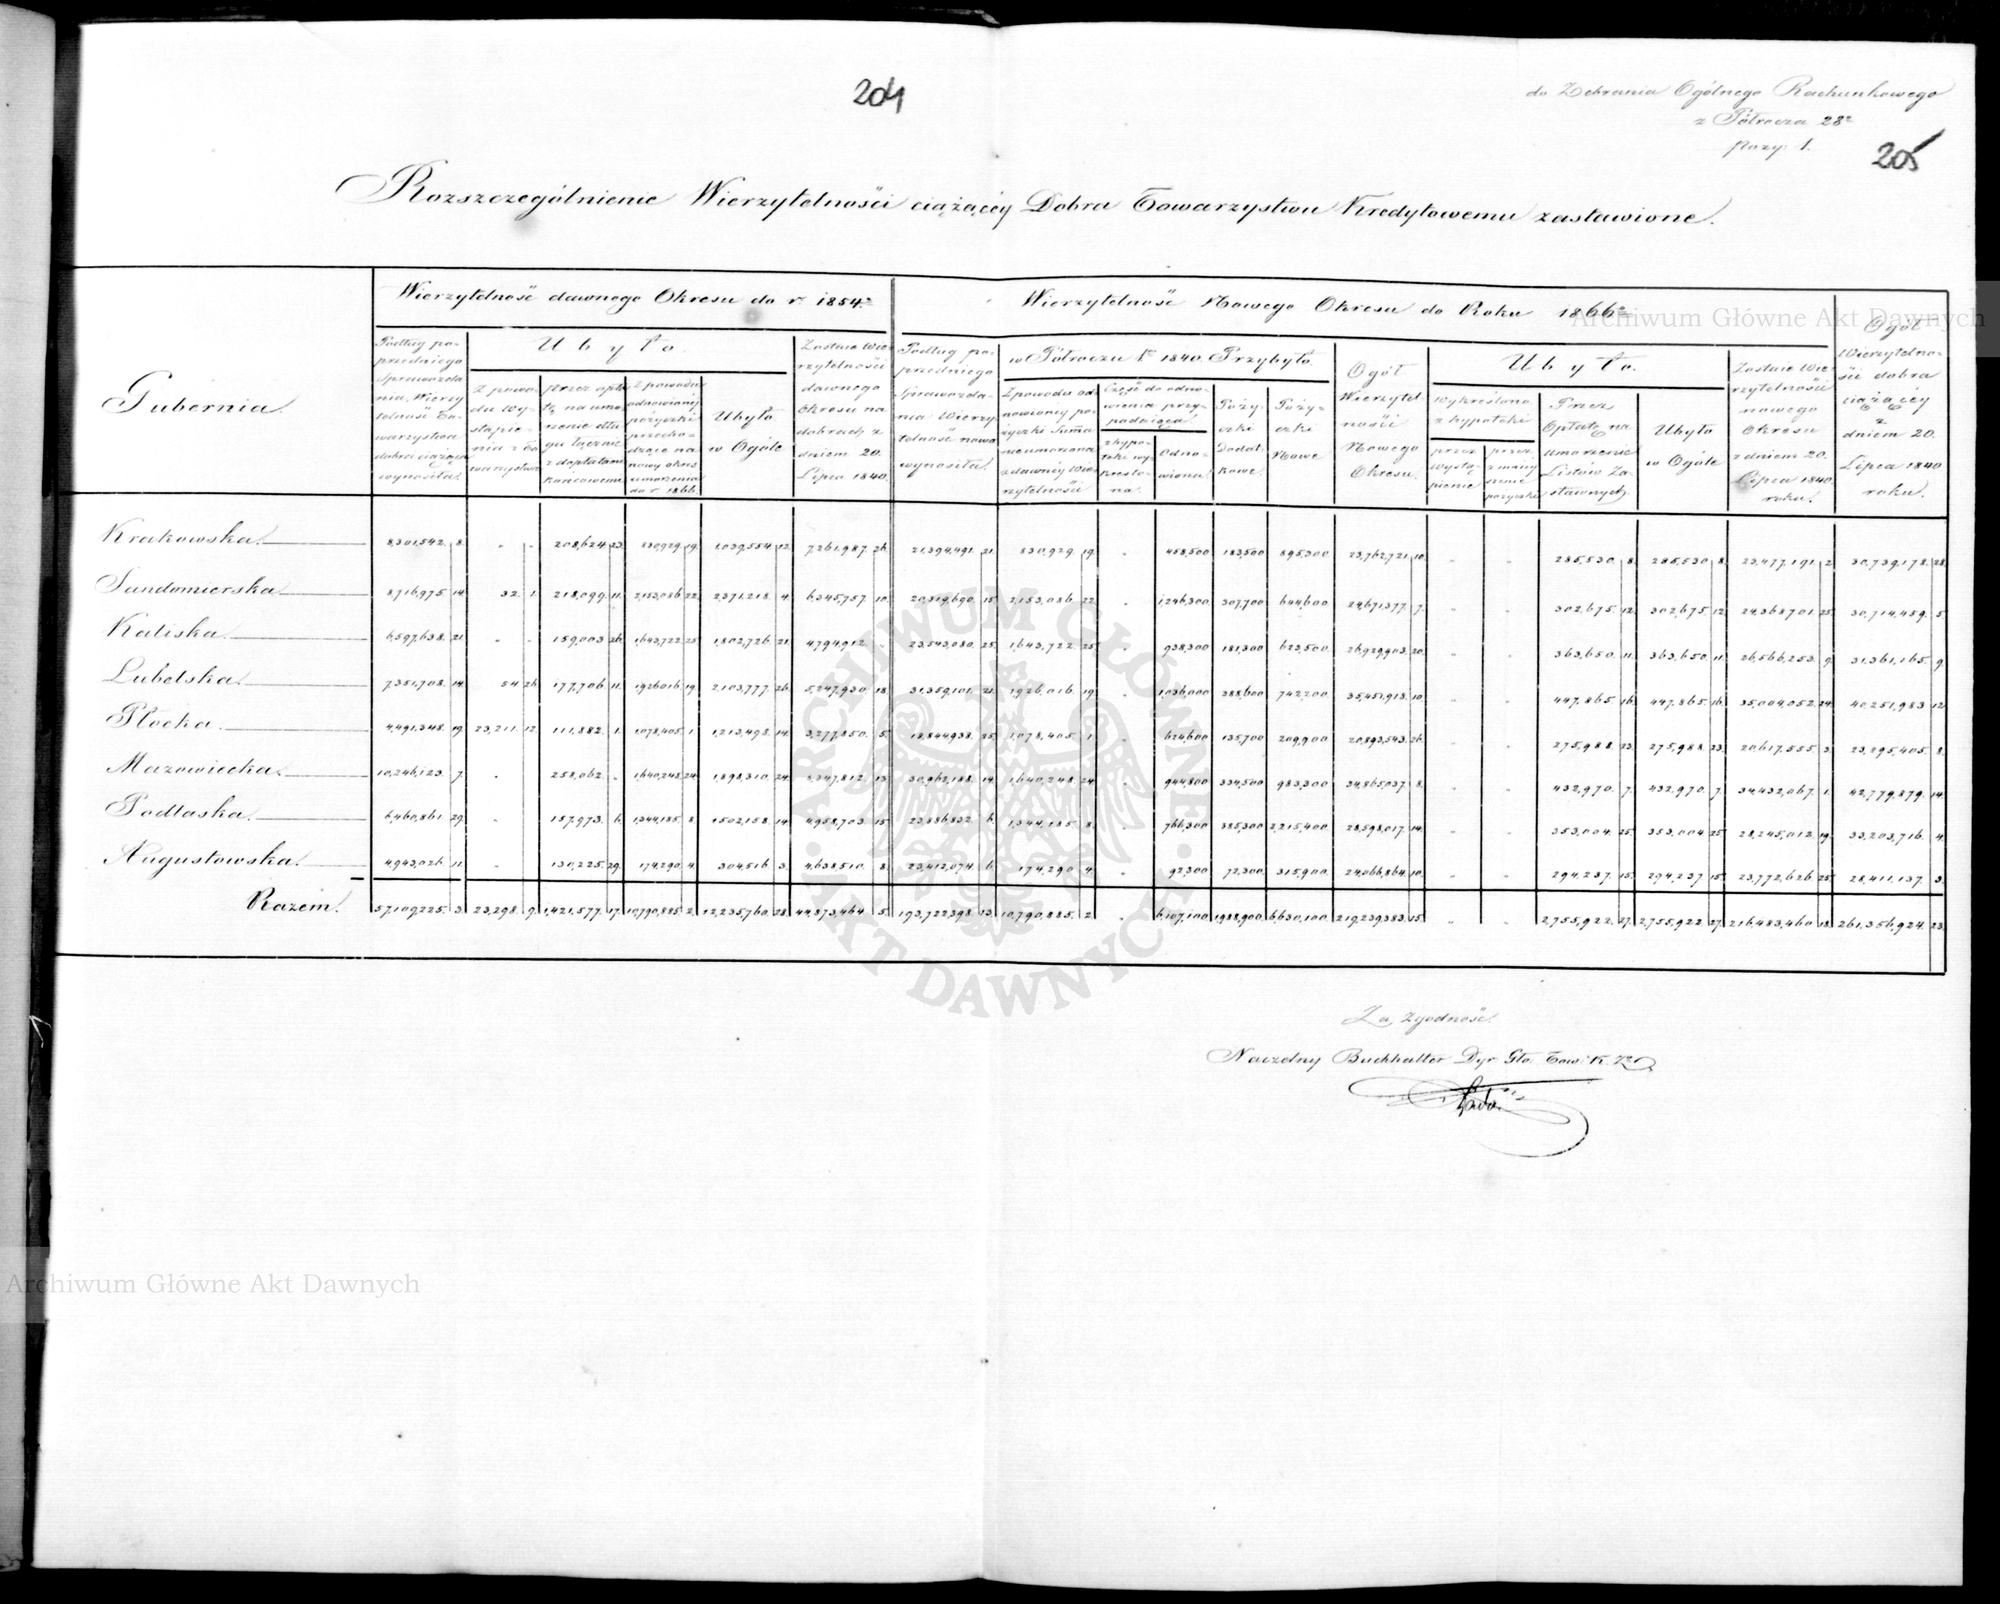 204
do Zebrania Ogólnego Rachunkowego
z Półrocza 28º
pozy: 1.
205
Rozszczególnienie Wierzytelności ciążącéy Dobra Towarzystwu Kredytowemu zastawione.
Gubernia.
Wierzytelność dawnego Okresu do r. 1854º
Podług poprzedniego Sprawozdania, Wierzytelność Towarzystwa dobra ciążąca wynosiła.
Ubyło
Z powodu wystąpienia z Towarzystwa
przez opłatę na umorzenie długu łącznie z dopłatami końcowemi
Z powodu odnowionéj pożyczki przechodzące na nowy okres umorzenia do r. 1866.
Ubyło w Ogóle
Zostaie Wierzytelności dawnego Okresu na dobrach z dniem 20. Lipca 1840.
Wierzytelność Nowego Okresu do Roku 1866º
Podług poprzedniego Sprawozdania Wierzytelność nowa wynosiła.
w Półroczu Im 1840. Przybyło.
Z powodu odnowioney pożyczki Summa nieumorzona z dawnéy Wierzytelności
Część do odnowienia przypadająca
z hypoteki wykreślona.
Odnowiona.
Pożyczki dodatkowe.
Pożyczki Nowe
Ogół Wierzytelności Nowego Okresu.
Ubyło.
Wykreślono z hypoteki
przez wystąpienie
przez zmnieyszenie pożyczki
Przez Opłatę na umorzenie Listów Zastawnych.
Ubyło w Ogóle
Zostaie Wierzytelności nowego Okresu z dniem 20. Lipca 1840. roku.
Ogół Wierzytelności dobra ciążącéy z dniem 20. Lipca 1840 roku.
Krakowska. 8,301,542. 8. - - 208,624 23. 830,929. 19. 1,039,554 12. 7,261,987. 26. 21,394,491. 21. 830,929. 19. - 458,500 183,500 895,300. 23,762,721. 10. - - 285,530. 8. 285,530 8. 23,477,191. 2. 30,739,178. 28.
Sandomierska 8,716,975. 14. 32. 1. 218,099. 11. 2,153,086 22. 2,371,218. 4. 6,345,757 10. 20,319,690. 15. 2,153,086. 22. - 1,246,300 307,700 644,600 24,671,377. 7. - - 302,675. 12. 302,675 12. 24,368,701. 25. 30,714,459. 5.
Kaliska. 6,597,638. 21. - - 159,003 26. 1,643,722 25. 1,802,726. 21. 4,794,912. - 23,543,080. 25. 1,643,722. 25. - 938,300 181,300 623,500. 26,929,903. 20. - - 363,650. 11. 363,650. 11. 26,566,253. 9. 31,361,165. 9.
Lubelska. 7,351,708. 14. 54 26. 177,706. 11. 1,926,016 19. 2,103,777. 26. 5,247,930. 18. 31,359,101. 21. 1,926,016. 19. - 1,036,000 388,600 742,200 35,451,918. 10. - - 447,865. 16. 447,865. 16. 35,004,052. 24. 40,251,983 12.
Płocka. 4,491,348. 19. 23,211. 12. 111,882. 1. 1,078,405. 1. 1,213,498. 14. 3,277,850. 5. 18,844,938. 25. 1,078,405. 1. - 624,600 135,700 209,900 20,893,543. 26. - - 275,988. 23. 275,988 23. 20,617,555. 3. 23,895,405. 8.
Mazowiecka. 10,246,123. 7. - 258,062. - 1,640,248 24. 1,898,310. 24. 8,347,812. 13. 30,962,188. 14. 1,640,248. 24. - 944,800 334,500 983,300 34,865,037. 8. - - 432,970. 7. 432,970. 7. 34,432,067. 1. 42,779,879. 14.
Podlaska. 6,460,861. 29. - 157,973. 6. 1,344,185. 8. 1,502,158. 14. 4,958,703. 15. 23,886,832. 6. 1,344,185. 8. - 766,300 385,300 2,215,400 28,598,017. 14. - - 353,004. 25. 353,004 25. 28,245,012. 19. 33,203,716. 4.
Augustowska. 4,943,026. 11. - 130,225. 29. 174,290. 4. 304,516. 3. 4,638,510. 8. 23,412,074. 6. 174,290. 4. - 92,300 72,300 315,900. 24,066,864. 10. - - 294,237. 15. 294,237 15. 23,772,626. 25. 28,411,137. 3.
Razem. 57,109,225. 3. 23,298. 9. 1,421,577. 17. 10,790,885 2. 12,235,760. 28. 44,873,464. 5. 193,722,398. 13. 10,790,885. 2. - 6,107,100 1,988,900 6,630,100. 219,239,383. 15. - - 2,755,922. 27. 2,755,922 27. 216,483,460. 18. 261,356,924. 23.
Za Zgodność.
Naczelny Buchhalter Dyr. Głó. Tow: K. Zº
Archiwum Główne Akt Dawnych
ARCHIWUM GŁÓWNE AKT DAWNYCH
Archiwum Główne Akt Dawnych